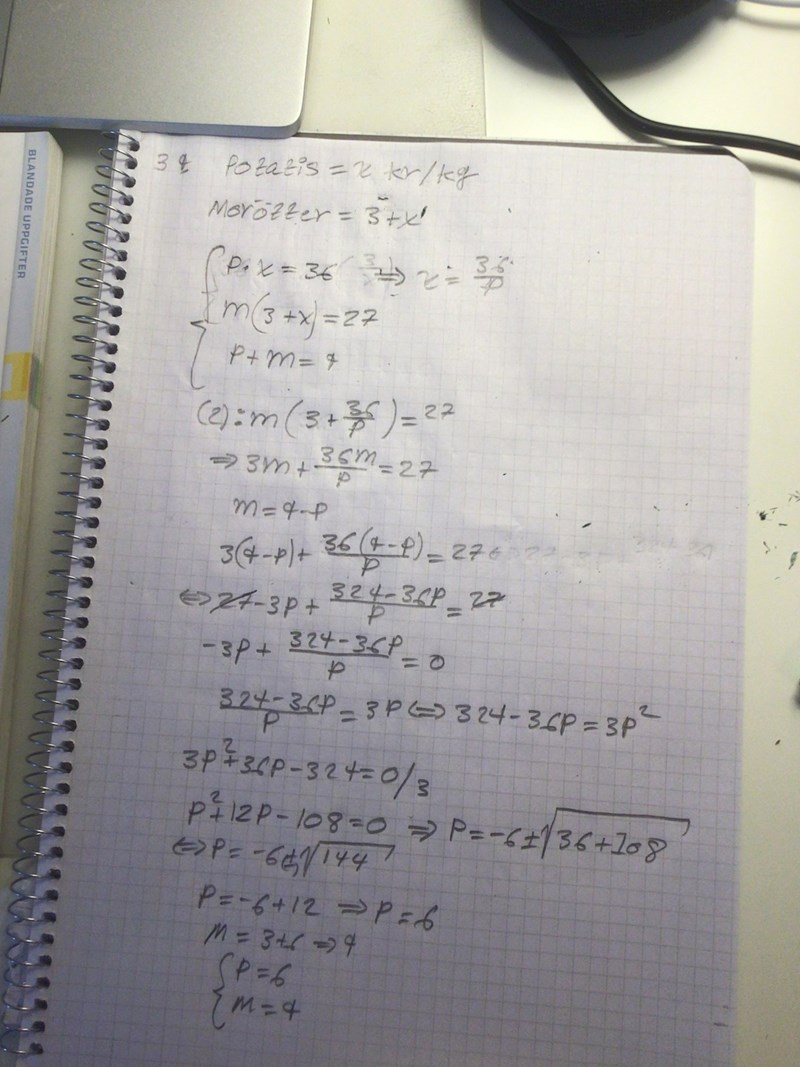 BLANDADE UPPGIFTER
39 Potatis = x kr/kg
Morötter = 3+x
P·x = 36 ⇒ x = 36/P
m(3+x) = 27
P+m = 9
(2): m(3+36/P) = 27
⇒ 3m + 36m/P = 27
m = 9-P
3(9-P) + 36(9-P)/P = 27
⇔ 27-3P + 324-36P/P = 27
-3P + 324-36P/P = 0
324-36P/P = 3P ⇔ 324-36P = 3P²
3P²+36P-324=0/3
P²+12P-108=0 ⇒ P=-6±√36+108
⇔ P=-6±√144
P=-6+12 ⇒ P=6
M=3+6 ⇒ 9
P=6
M=9